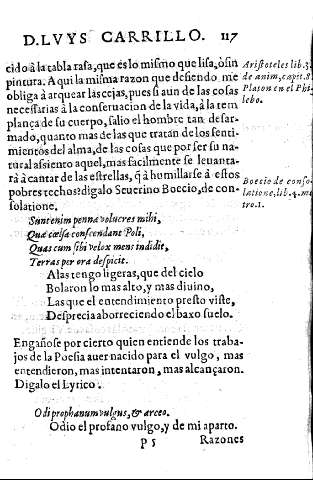 D. LVYS CARRILLO. 117
cido à la tabla rasa, que es lo mismo que lisa, ò sin
pintura. Aqui la misma razon que desiendo me
obliga à arquear las cejas, pues si aun de las cosas
necessarias à la conseruacion de la vida, à la tem
plança de su cuerpo, salio el hombre tan desar-
mado, quanto mas de las que tratan de los senti-
mientos del alma, de las cosas que por ser su na-
tural assiento aquel, mas facilmente se leuanta-
rà à cantar de las estrellas, q̃ à humillarse à estos
pobres techos? digalo Seuerino Boecio, de con-
solatione.
Sunt enim pennæ volucres mihi,
Quæ cœlsa conscendant Poli,
Quas cum sibi velox mens indidit,
Terras per ora despicit.
Alas tengo ligeras, que del cielo
Bolaron lo mas alto, y mas diuino,
Las que el entendimiento presto viste,
Desprecia aborreciendo el baxo suelo.
Engañose por cierto quien entiende los traba-
jos de la Poesia auer nacido para el vulgo, mas
entendieron, mas intentaron, mas alcançaron.
Digalo el Lyrico.
Odi prophanum vulgus, & arceo.
Odio el profano vulgo, y de mi aparto.
P 5 Razones
Aristoteles lib. 3.
de anim, capit. 8.
Plason en el Phi
lebo.
Boecio de conso
latione, lib. 4. me
tro. 1.